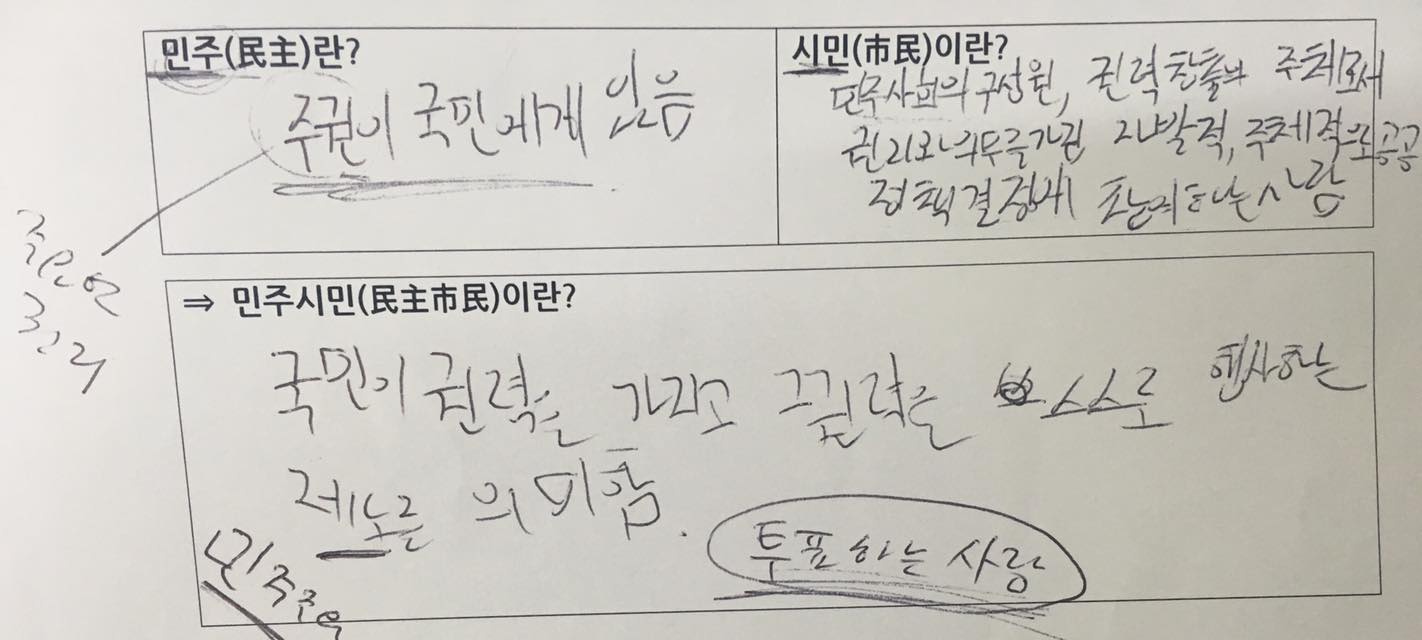 민주(民主)란?
주권이 국민에게 있음
시민(市民)이란?
민주사회의 구성원, 권력 창출의 주체로서
권리와 의무를 가짐 자발적, 주체적으로 공공
정책결정에 참여하는 사람
주인의
권리
⇒ 민주시민(民主市民)이란?
국민이 권력을 가지고 그 권력을 스스로 행사하는
제도를 의미함.
투표하는 사람
민주